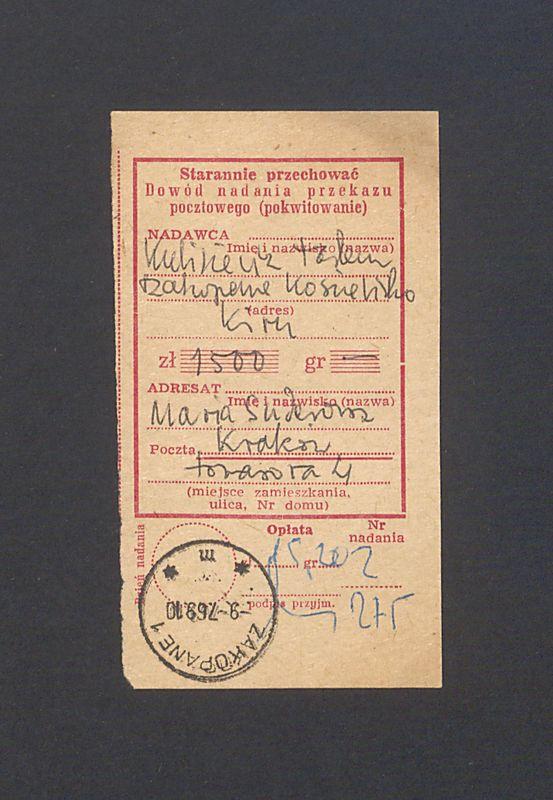 Starannie przechować
Dowód nadania przekazu
pocztowego (pokwitowanie)
NADAWCA
Imię i nazwisko (nazwa)
Zakopane Kościelisko
(adres)
Kiry
zł 1500 gr —
ADRESAT
Imię i nazwisko (nazwa)
Maria
Poczta Kraków
(miejsce zamieszkania,
ulica, Nr domu)
Dzień nadania
Opłata
Nr
nadania
15,20 gr
podpis przyjm.
275
m
-9-7.69.10
ZAKOPANE 1